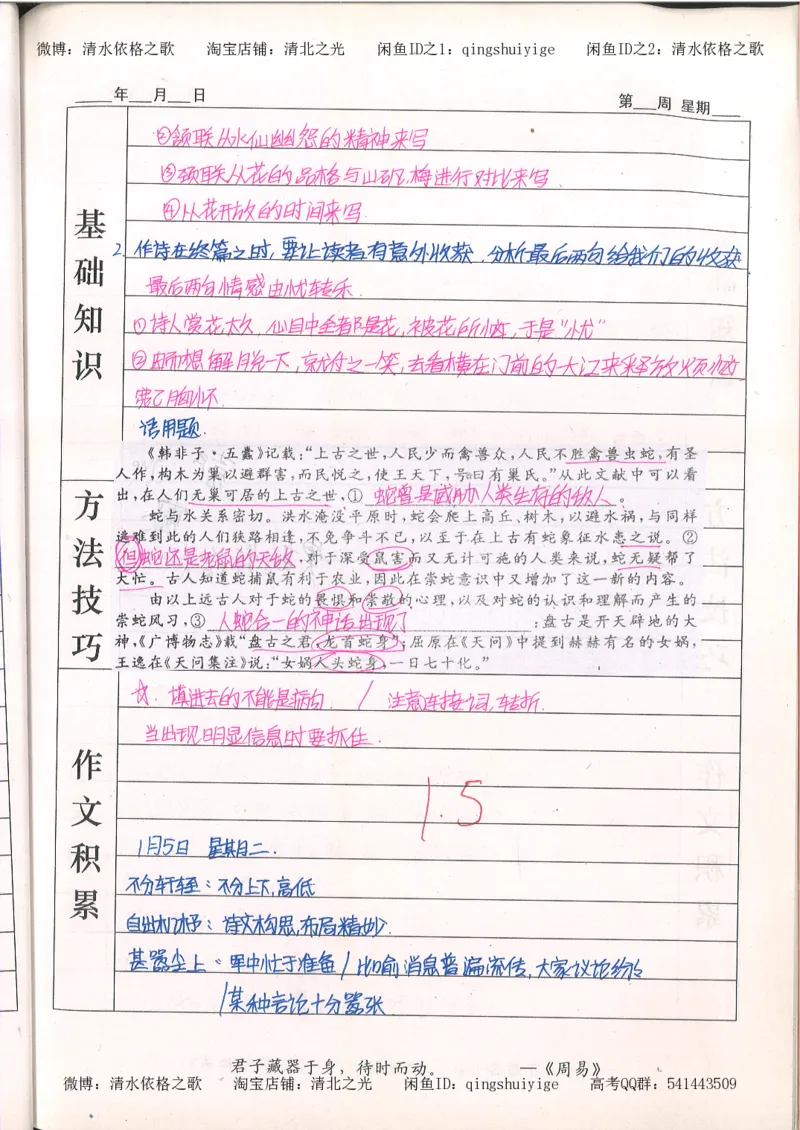 微博：清水依格之歌 淘宝店铺：清北之光 闲鱼ID之1：qingshuiyige 闲鱼ID之2：清水依格之歌
年 月 日 第 周 星期
②颔联从水仙幽怨的精神来写
③颈联从花的品格与山矾,梅进行对比来写.
④从花开放的时间来写.
基础知识
2. 作诗在终篇之时,要让读者有意外收获,分析最后两句给我们的收获
最后两句情感由忧转乐.
①诗人赏花太久,心目中全都是花,被花所恼,于是“忧”
②出而想解脱一下,就付之一笑,去看横在门前的大江来释放烦恼
宽己胸怀.
语用题.
《韩非子·五蠹》记载：“上古之世，人民少而禽兽众，人民不胜禽兽虫蛇，有圣
人作，构木为巢以避群害，而民悦之，使王天下，号曰有巢氏。”从此文献中可以看
出，在人们无巢可居的上古之世，① 蛇曾是威胁人类生存的敌人 。
方法技巧
蛇与水关系密切。洪水淹没平原时，蛇会爬上高丘、树木，以避水祸，与同样
逃难到此的人们狭路相逢，不免争斗不已，以至于在上古有蛇象征水患之说。②
但蛇还是老鼠的天敌，对于深受鼠害而又无计可施的人类来说，蛇无疑帮了
大忙。古人知道蛇捕鼠有利于农业，因此在崇蛇意识中又增加了这一新的内容。
由以上远古人对于蛇的畏惧和崇敬的心理，以及对蛇的认识和理解而产生的
崇蛇风习，③ 人蛇合一的神话出现了 ：盘古是开天辟地的大
神，《广博物志》载“盘古之君，龙首蛇身”；屈原在《天问》中提到赫赫有名的女娲，
王逸在《天问集注》说：“女娲人头蛇身，一日七十化。”
☆. 填进去的不能是病句. / 注意连接词,转折.
当出现明显信息时要抓住.
作文积累
1.5
1月5日 星期二.
不分轩轾：不分上下,高低
自出机杼：诗文构思,布局精妙.
甚嚣尘上：军中忙于准备/比喻消息普遍流传,大家议论纷纷
/某种言论十分嚣张
君子藏器于身，待时而动。 —《周易》
微博：清水依格之歌 淘宝店铺：清北之光 闲鱼ID：qingshuiyige 高考QQ群：541443509